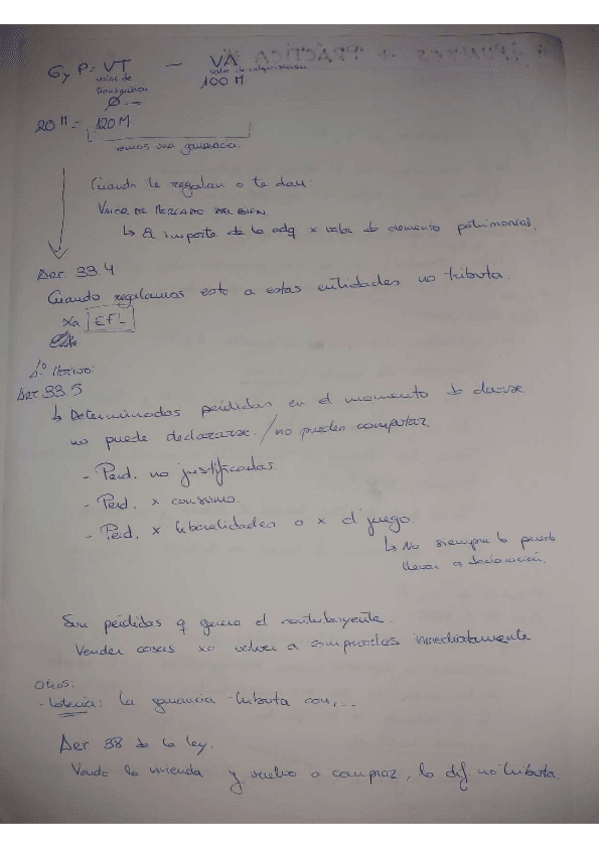 G y P = VT - VA
valor de
100 M
20 M = 120 M
ganancia
Cuando te regalan o te dan:
VALOR DE MERCADO DEL BIEN.
↳ El importe de la adq x valor de elemento patrimonial.
Art. 33.4
Cuando regalamos esto a estas entidades no tributa.
Xa EFL
Art. 33.5
↳ Determinadas pérdidas en el momento de darse
no puede declararse. / no pueden computar.
- Perd. no justificadas.
- Perd. x consumo.
- Perd. x liberalidades o x el juego.
↳ No siempre lo puedo
llevar a declaración.
Son pérdidas q genera el contribuyente.
Vender cosas xo volver a comprarlas inmediatamente
Otros:
- Lotería: la ganancia tributa con...
Art. 38 de la ley.
Vendo la vivienda y vuelvo a comprar, la dif no tributa.